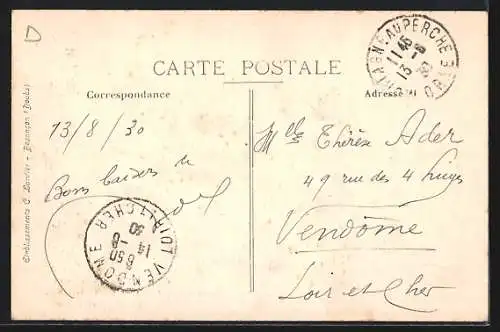 D
CARTE POSTALE
Correspondance
Adresse
13/8/30
Bons baisers
Mlle Thérèse Ader
49 rue des 4 Huyes
Vendôme
Loir et Cher
MORTAGNE AU PERCHE
ORNE
11 45
13 -8
30
VENDOME
LOIR ET CHER
6 50
14 -8
30
Etablissements C. Lardier - Besançon (Doubs)